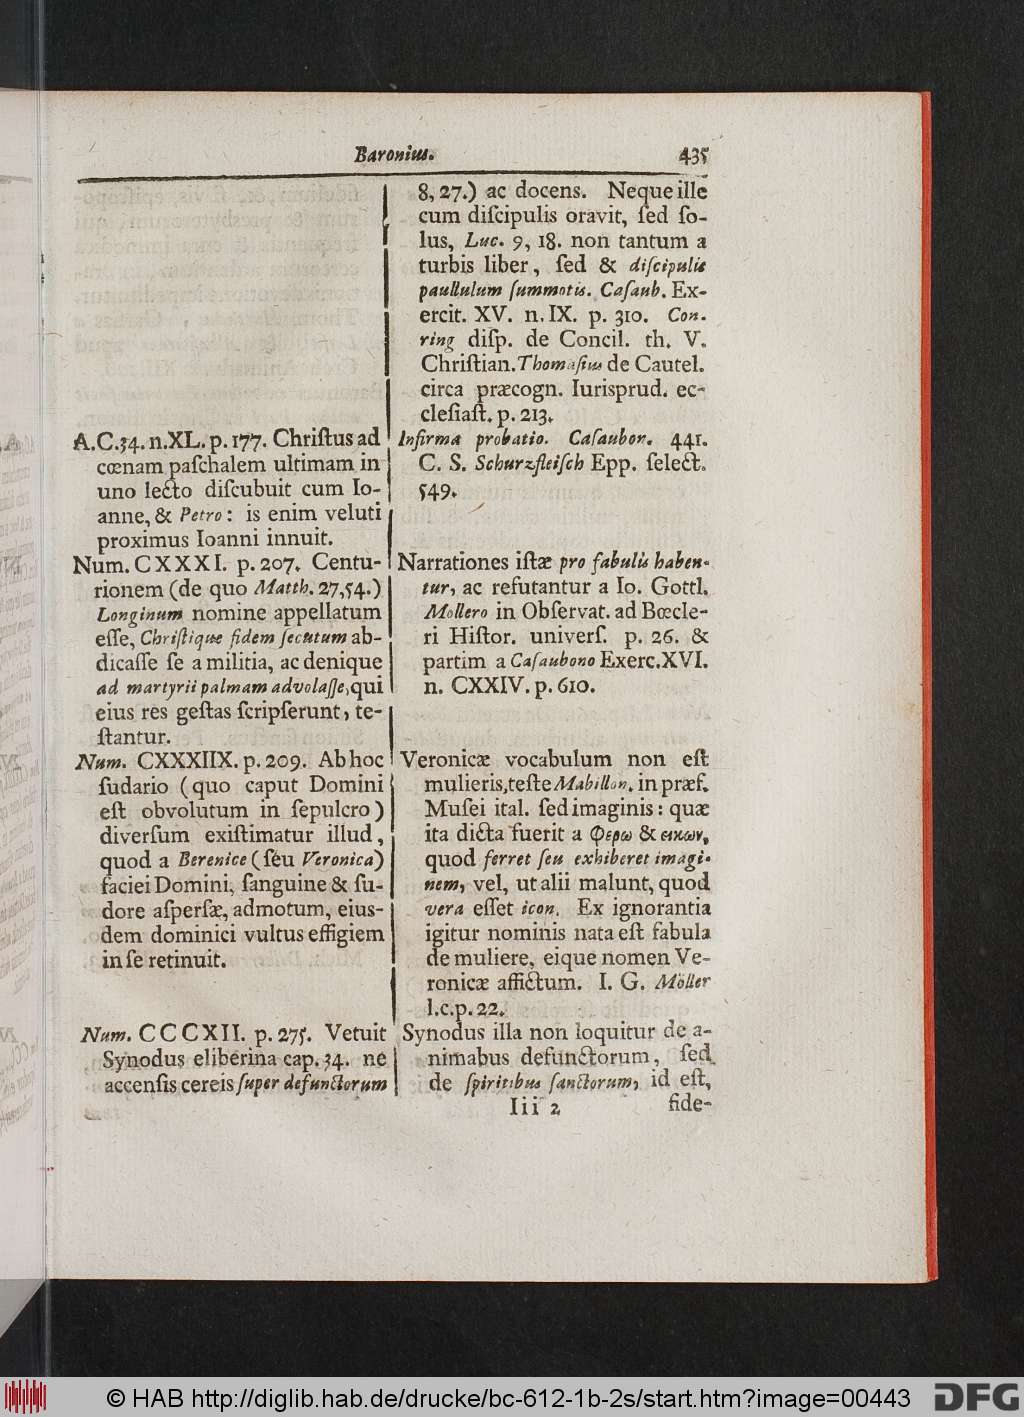 Baronius. 435
8, 27.) ac docens. Neque ille
cum diſcipulis oravit, ſed ſo-
lus, Luc. 9, 18. non tantum a
turbis liber, ſed & diſcipulis
paullulum ſummotis. Caſaub. Ex-
ercit. XV. n. IX. p. 310. Con-
ring diſp. de Concil. th. V.
Chriſtian. Thomaſius de Cautel.
circa præcogn. Iurisprud. ec-
cleſiaſt. p. 213.
A. C. 34. n. XL. p. 177. Chriſtus ad
cœnam paſchalem ultimam in
uno lecto diſcubuit cum Io-
anne, & Petro: is enim veluti
proximus Ioanni innuit.
Infirma probatio. Caſaubon. 441.
C. S. Schurzfleiſch Epp. ſelect.
549.
Num. CXXXI. p. 207. Centu-
rionem (de quo Matth. 27, 54.)
Longinum nomine appellatum
eſſe, Chriſtique fidem ſecutum ab-
dicaſſe ſe a militia, ac denique
ad martyrii palmam advolaſſe, qui
eius res geſtas ſcripſerunt, te-
ſtantur.
Narrationes iſtæ pro fabulis haben-
tur, ac refutantur a Io. Gottl.
Mollero in Obſervat. ad Bœcle-
ri Hiſtor. univerſ. p. 26. &
partim a Caſaubono Exerc. XVI.
n. CXXIV. p. 610.
Num. CXXXIIX. p. 209. Ab hoc
ſudario (quo caput Domini
eſt obvolutum in ſepulcro)
diverſum exiſtimatur illud,
quod a Berenice (ſeu Veronica)
faciei Domini, ſanguine & ſu-
dore aſperſæ, admotum, eius-
dem dominici vultus effigiem
in ſe retinuit.
Veronicæ vocabulum non eſt
mulieris, teſte Mabillon. in præf.
Muſei ital. ſed imaginis: quæ
ita dicta fuerit a φερω & εικων,
quod ferret ſeu exhiberet imagi-
nem, vel, ut alii malunt, quod
vera eſſet icon. Ex ignorantia
igitur nominis nata eſt fabula
de muliere, eique nomen Ve-
ronicæ affictum. I. G. Möller
l. c. p. 22.
Num. CCCXII. p. 275. Vetuit
Synodus eliberina cap. 34. ne
accenſis cereis ſuper defunctorum
Synodus illa non loquitur de a-
nimabus defunctorum, ſed
de ſpiritibus ſanctorum, id eſt,
Iii 2 fide-
© HAB http://diglib.hab.de/drucke/bc-612-1b-2s/start.htm?image=00443
DFG